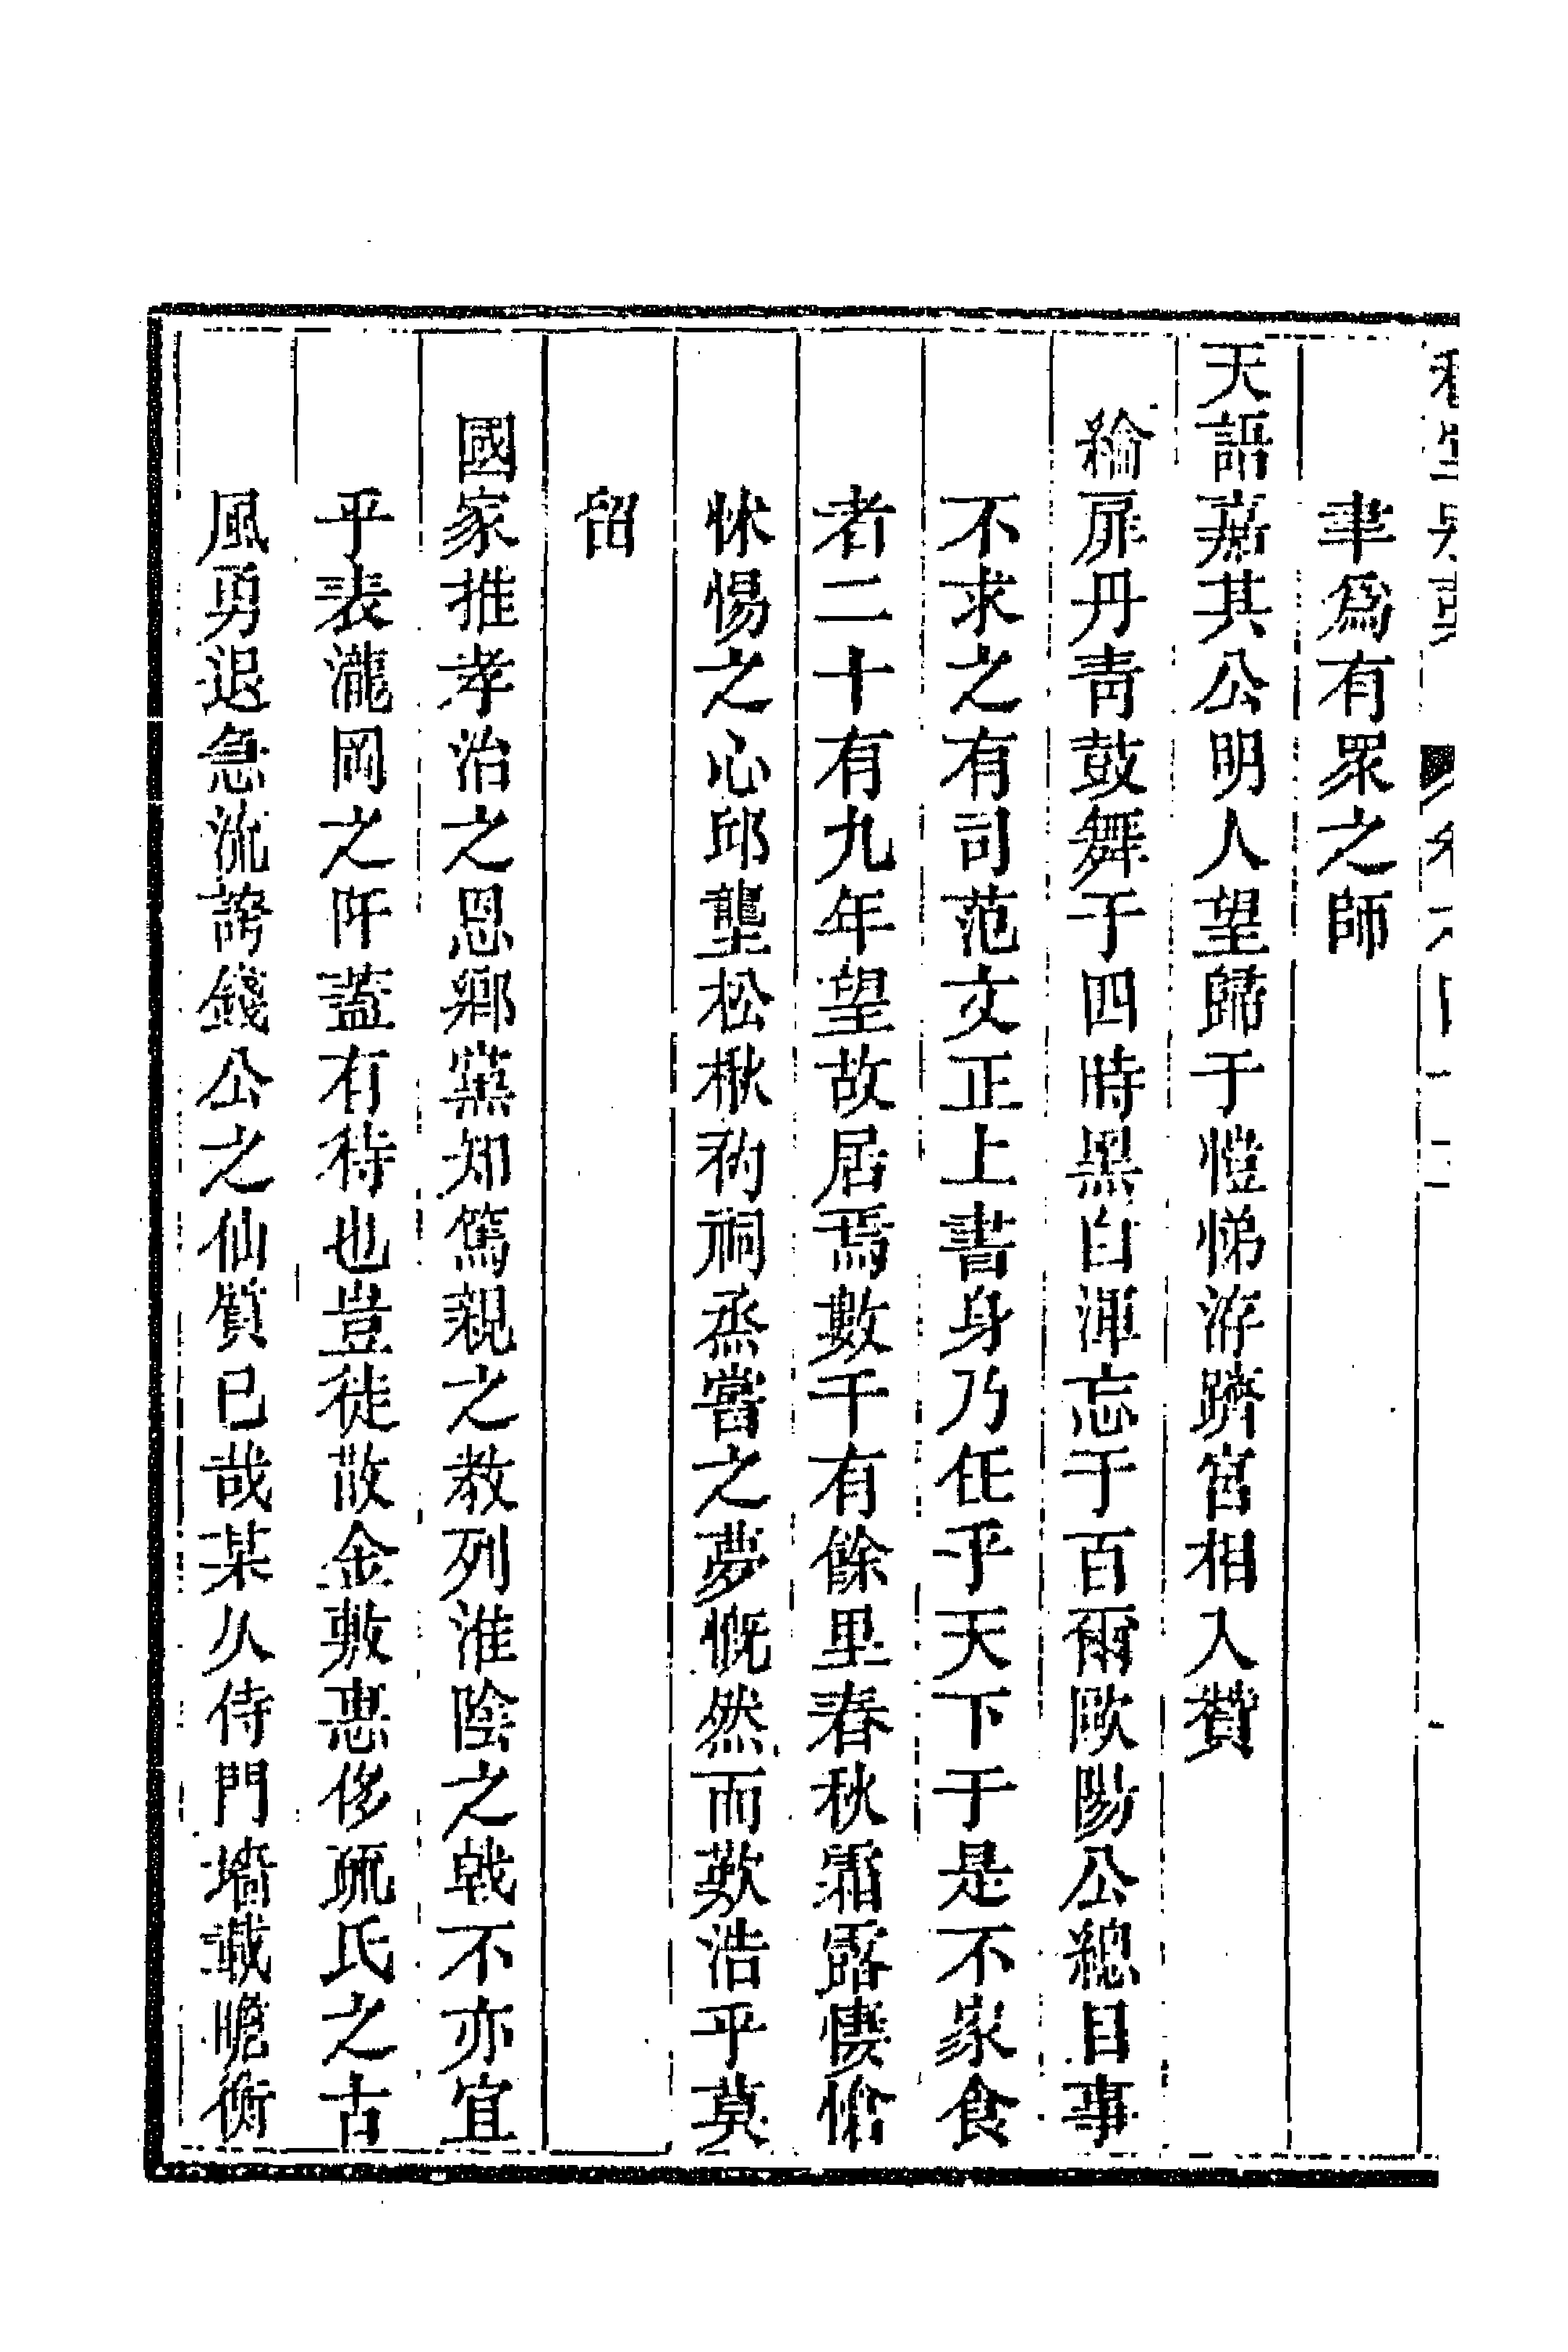 聿爲有眾之師
天語嘉其公明人望歸于愷悌洊躋宮相入贊
綸扉丹青鼓舞于四時黑白渾忘于百爾歐陽公總目事
不求之有司范文正上書身乃任乎天下于是不家食
者二十有九年望故居焉數千有餘里春秋霜露悽愴
怵惕之心邱壟松楸礿祠烝嘗之夢慨然而歎浩乎莫
留
國家推孝治之恩鄉黨知篤親之教列淮陰之戟不亦宜
乎表瀧岡之阡蓋有待也豈徒散金敷惠侈疏氏之古
風勇退急流誇錢公之仙質已哉某久侍門墻載瞻衡